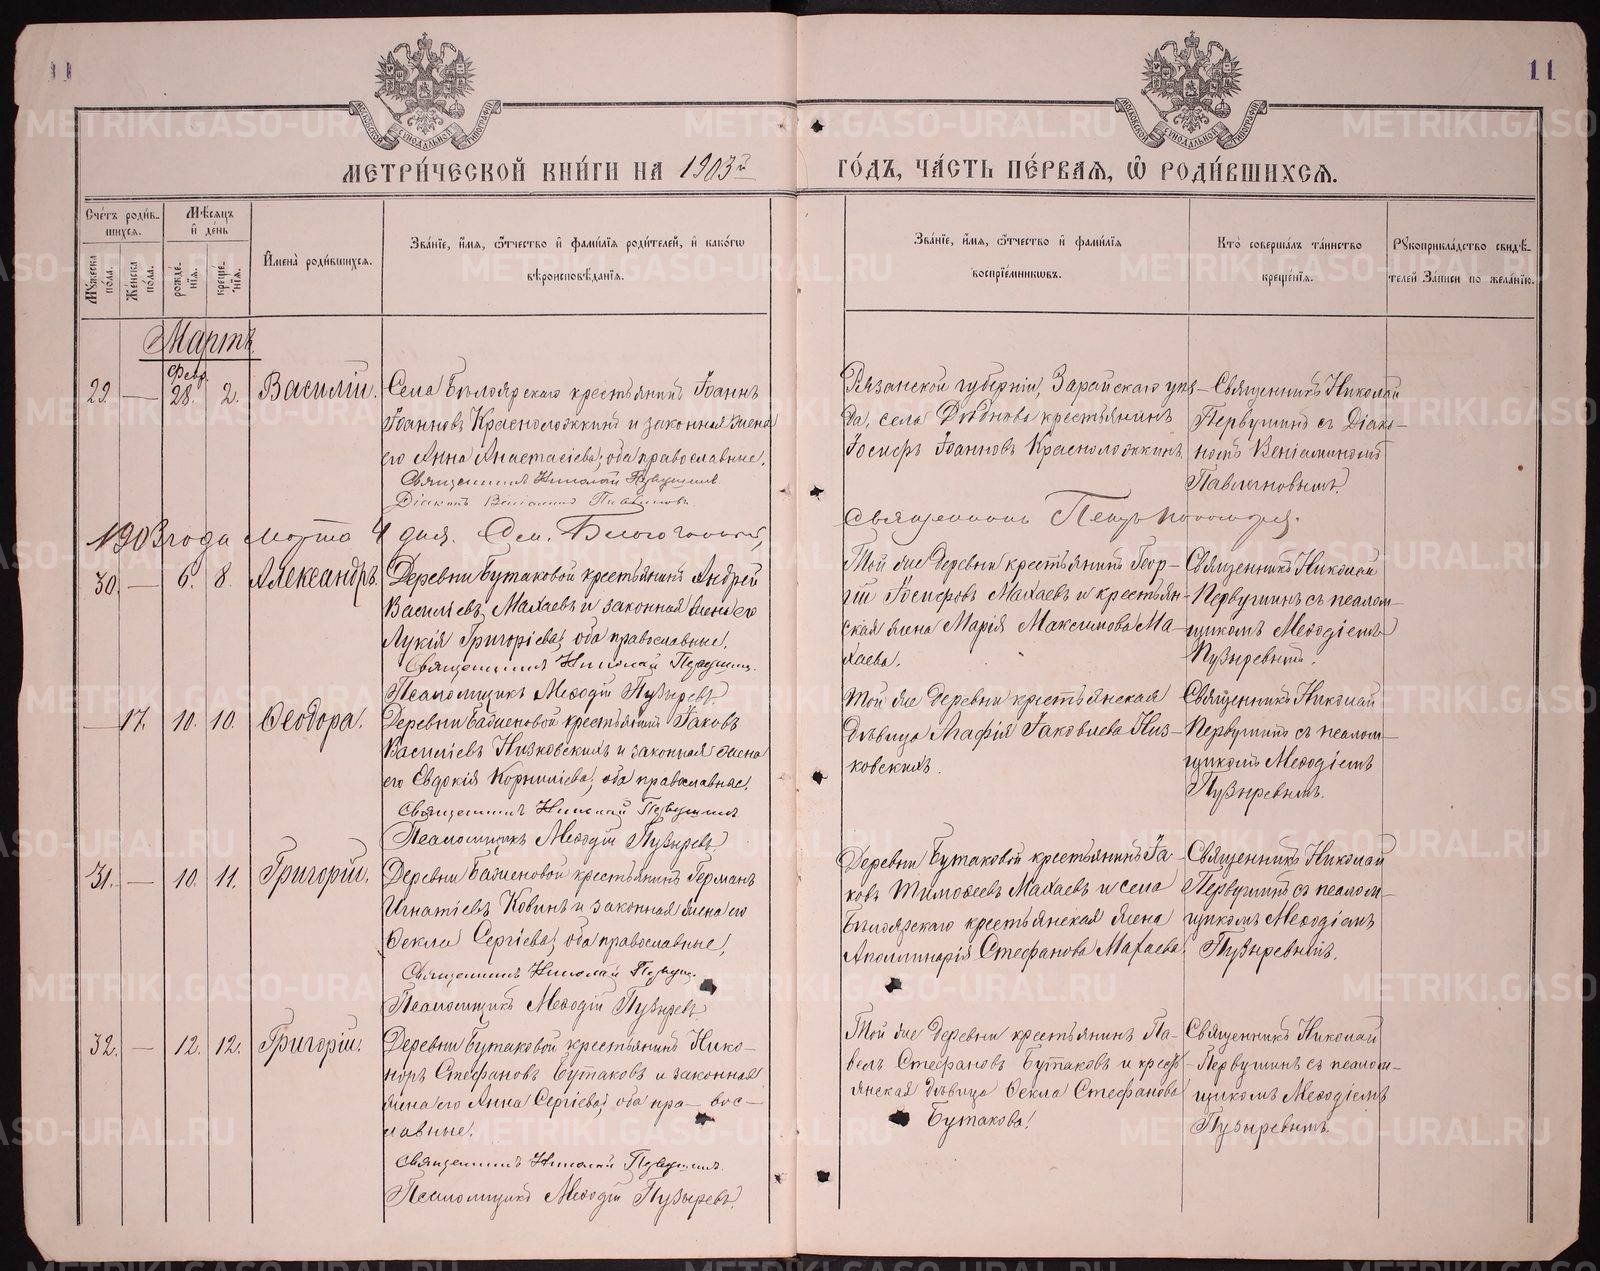 11
11
МЕТРИ́ЧЕСКОЙ КНИ́ГИ НА 1903й
ГО́ДЪ, ЧА́СТЬ ПЕ́РВАѦ, Ѽ РОДИ́ВШИХСѦ.
Сче́тъ роди́в-
шихсѧ.
Мꙋ́жеска по́ла.
Же́нска по́ла.
Мѣ́сѧцъ и҆ де́нь
рожде́-нїѧ.
креще́-нїѧ.
И҆мена̀ роди́вшихсѧ.
Зва́нїе, и҆́мѧ, ѻ҆́тчество и҆ фами́лїѧ роди́телей, и҆ како́гѡ
вѣроисповѣ́данїѧ.
Зва́нїе, и҆́мѧ, ѻ҆́тчество и҆ фами́лїѧ
воспрїе́мникѡвъ.
Кто̀ соверша́лъ та́инство
креще́нїѧ.
Рꙋкоприкла́дство свидѣ́-
телей за́писи по жела́нїю.
Мартъ.
29. — Февр. 28. 2. Василій.
Села Бѣлоярскаго крестьянинъ Іоаннъ
Іоанновъ Красноложкинъ и законная жена
его Анна Анастасіева; оба православные.
Священникъ Николай Первушинъ
Діаконъ Веніаминъ
Рязанской губерніи, Зарайскаго уѣз-
да, села крестьянинъ
Іосифъ Іоанновъ Красноложкинъ
Священникъ Николай
Первушинъ съ Діако-
номъ Веніаминомъ
1903 года марта 4 дня.
Священникъ
30. — 6. 8. Александръ.
Деревни Бутаковой крестьянинъ Андрей
Васильевъ Махаевъ и законная жена его
Лукія Григоріева; оба православные.
Священникъ Николай Первушинъ.
Псаломщикъ Меѳодій Пузыревъ
Той же деревни крестьянинъ Геор-
гій Іосифовъ Махаевъ и крестьян-
ская жена Марія Максимова Ма-
хаева.
Священникъ Николай
Первушинъ съ псалом-
щикомъ Меѳодіемъ
Пузыревымъ.
— 17. 10. 10. Ѳеодора.
Деревни Бабиновой крестьянинъ Іаковъ
Василіевъ Низковскихъ и законная жена
его Евдокія Корниліева; оба православные.
Священникъ Николай Первушинъ
Псаломщикъ Меѳодій Пузыревъ
Той же деревни крестьянская
дѣвица Агафія Іаковлева Низ-
ковскихъ.
Священникъ Николай
Первушинъ съ псалом-
щикомъ Меѳодіемъ
Пузыревымъ.
31. — 10. 11. Григорій.
Деревни Бабиновой крестьянинъ Германъ
Игнатіевъ Ковинъ и законная жена его
Ѳекла Сергіева; оба православные.
Священникъ Николай Первуш.
Псаломщикъ Меѳодій Пузыревъ
Деревни Бутаковой крестьянинъ Іа-
ковъ Тимоѳеевъ Махаевъ и села
Бѣлоярскаго крестьянская жена
Аполлинарія Стефанова Махаева.
Священникъ Николай
Первушинъ съ псалом-
щикомъ Меѳодіемъ
Пузыревымъ.
32. — 12. 12. Григорій.
Деревни Бутаковой крестьянинъ Нико-
норъ Стефановъ Бутаковъ и законная
жена его Анна Сергіева; оба пра-вос-
лавные.
Священникъ Николай Первушинъ.
Псаломщикъ Меѳодій Пузыревъ.
Той же деревни крестьянинъ Па-
велъ Стефановъ Бутаковъ и кресть-
янская дѣвица Ѳекла Стефанова
Бутакова.
Священникъ Николай
Первушинъ съ псалом-
щикомъ Меѳодіемъ
Пузыревымъ.